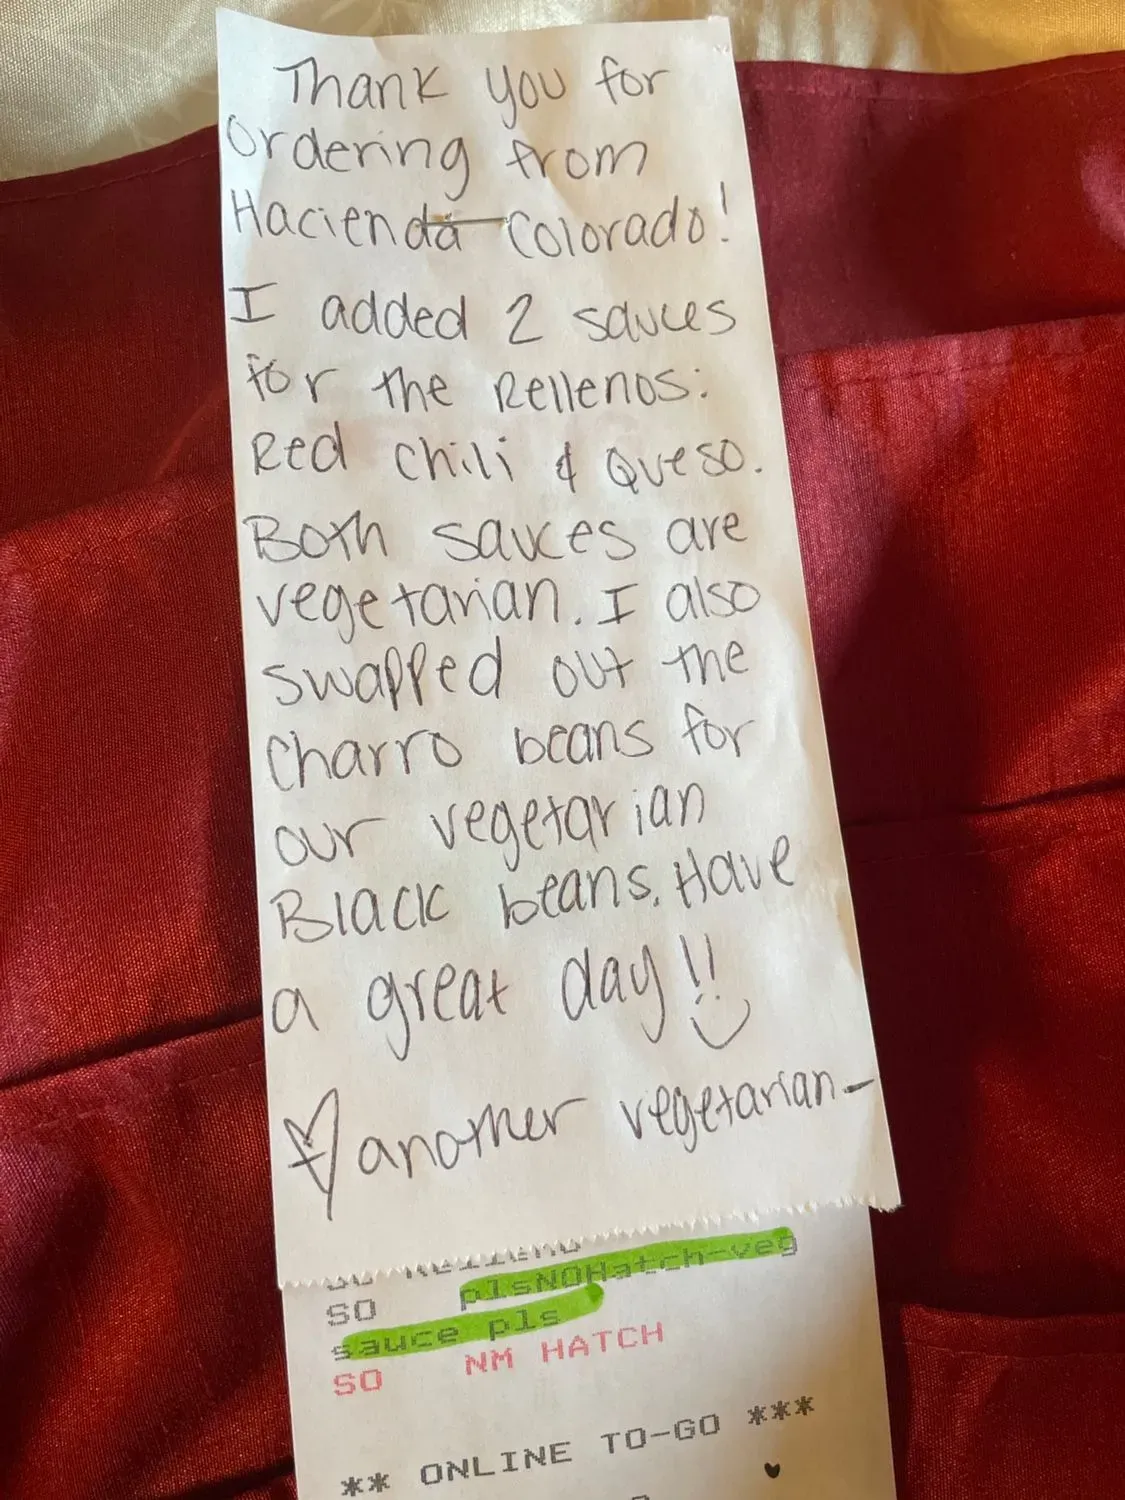 Thank you for
ordering from
Hacienda Colorado!
I added 2 sauces
for the Rellenos:
Red Chili & Queso.
Both sauces are
vegetarian. I also
swapped out the
Charro beans for
our vegetarian
Black beans. Have
a great day!!
another vegetarian-
SO plsNOHatch-veg
sauce pls
SO NM HATCH
** ONLINE TO-GO ***